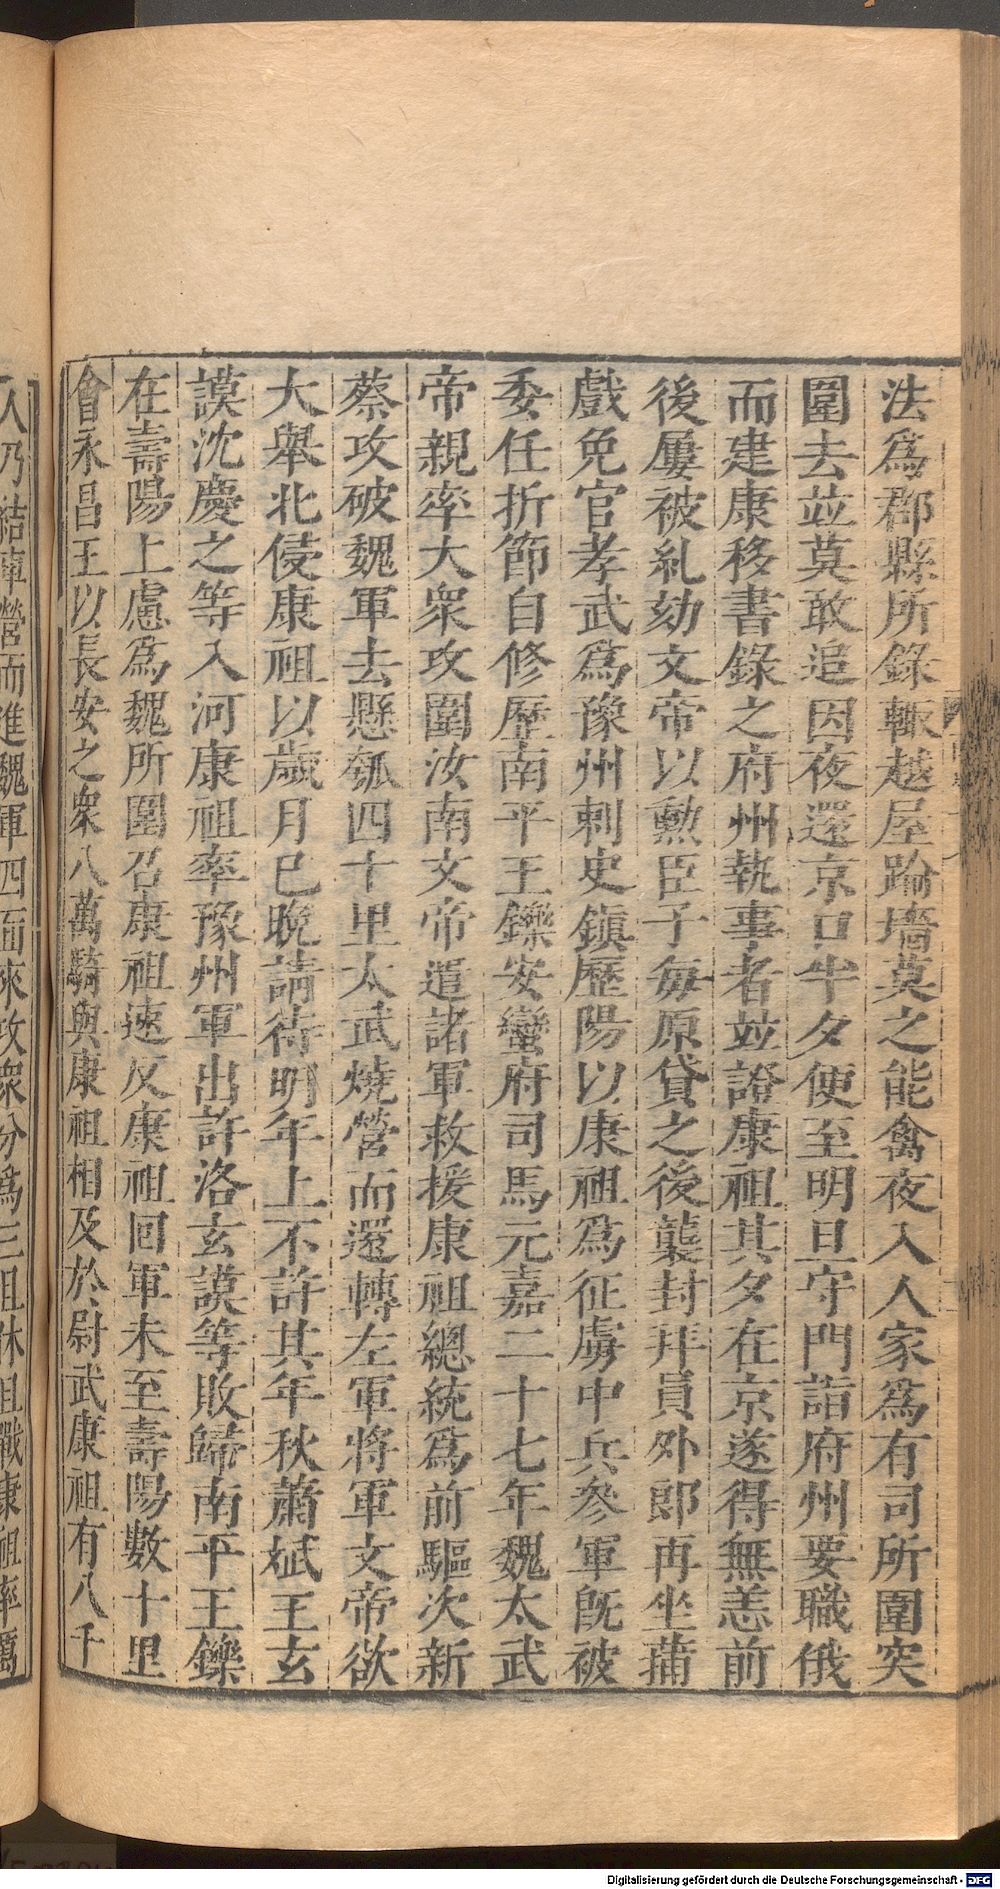 法爲郡縣所錄輙越屋踰墻莫之能禽夜入人家爲有司所圍突
圍去並莫敢追因夜還京口半夕便至明旦守門詣府州要職俄
而建康移書錄之府州執事者並證康祖其夕在京遂得無恙前
後屢被糺劾文帝以勲臣子每原貸之後襲封拜員外郎再坐蒱
戲免官孝武爲豫州刺史鎭歷陽以康祖爲征虜中兵參軍旣被
委任折節自修歷南平王鑠安蠻府司馬元嘉二十七年魏太武
帝親率大衆攻圍汝南文帝遣諸軍救援康祖總統爲前驅次新
蔡攻破魏軍去懸瓠四十里太武燒營而還轉左軍將軍文帝欲
大舉北侵康祖以歲月已晚請待明年上不許其年秋蕭斌王玄
謨沈慶之等入河康祖率豫州軍出許洛玄謨等敗歸南平王鑠
在壽陽上慮爲魏所圍召康祖速反康祖回軍未至壽陽數十里
會永昌王以長安之衆八萬騎與康祖相及於尉武康祖有八千
人乃結車營而進魏軍四面來攻衆分爲三且休且戰康祖率萬
Digitalisierung gefördert durch die Deutsche Forschungsgemeinschaft - DFG